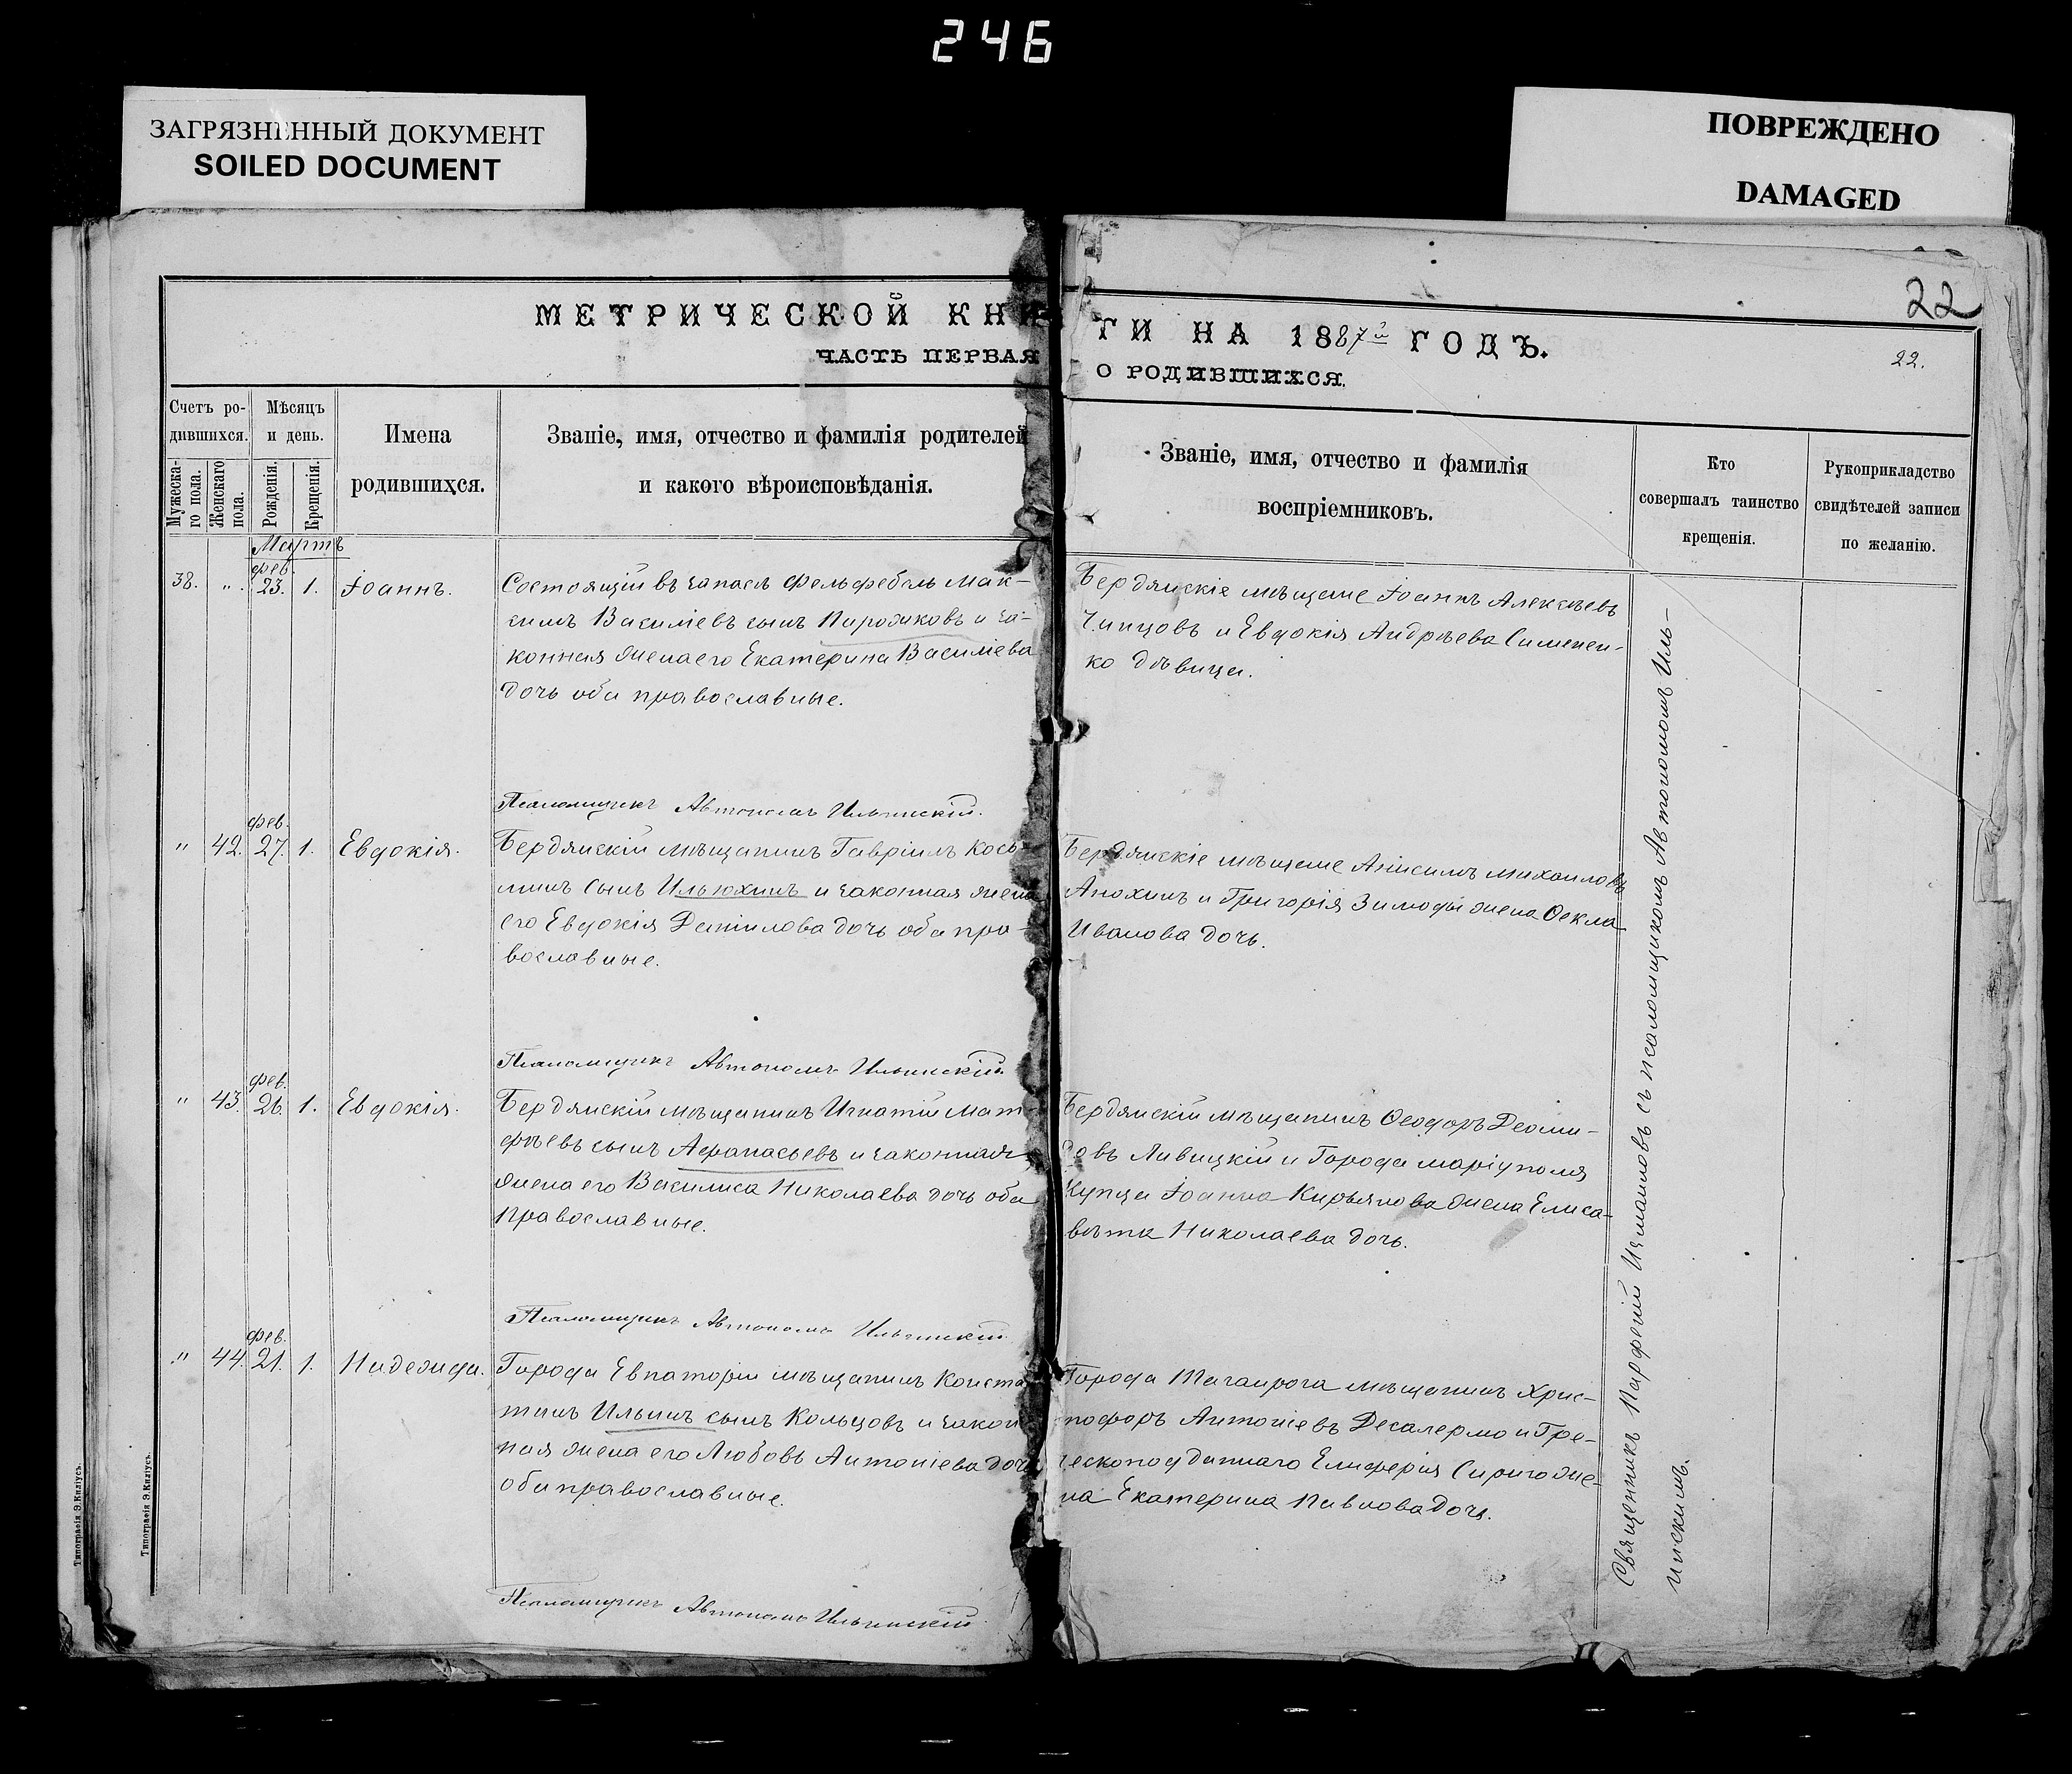 246
ЗАГРЯЗНЕННЫЙ ДОКУМЕНТ
SOILED DOCUMENT
ПОВРЕЖДЕНО
DAMAGED
22
МЕТРИЧЕСКОЙ КНИ
ЧАСТЬ ПЕРВАЯ
ГИ НА 1887й ГОДЪ.
О РОДИВШИХСЯ.
22.
Счетъ ро-
дившихся.
Мужеска-
го пола.
Женскаго
пола.
Мѣсяцъ
и день.
Рожденія.
Крещенія.
Имена
родившихся.
Званіе, имя, отчество и фамилія родителей
и какого вѣроисповѣданія.
Званіе, имя, отчество и фамилія
воспріемниковъ.
Кто
совершалъ таинство
крещенія.
Рукоприкладство
свидѣтелей записи
по желанію.
Мартъ
фев.
38. " 23. 1. Іоаннъ.
Состоящій въ запасѣ Фельдфебель Мак-
симъ Василіевъ сынъ Пирожковъ и за-
конная жена его Екатерина Василіева
дочь оба православные.
Бердянскіе мѣщане Іоаннъ Алексѣевъ
Чипцовъ и Евдокія Андрѣева Сименен-
ко дѣвица.
Псаломщикъ Автономъ Ильинскій.
фев.
" 42. 27. 1. Евдокія.
Бердянскій мѣщанинъ Гавріилъ Козь-
минъ сынъ Ильюхинъ и законная жена
его Евдокія Даніилова дочь оба пра-
вославные.
Бердянскіе мѣщане Анисимъ Михаиловъ
Анохинъ и Григорія Зимоды жена Ѳекла
Иванова дочь.
Псаломщикъ Автономъ Ильинскій.
фев.
" 43. 26. 1. Евдокія.
Бердянскій мѣщанинъ Игнатій Мат-
фѣевъ сынъ Афанасьевъ и законная
жена его Василиса Николаева дочь оба
православные.
Бердянскій мѣщанинъ Ѳеодоръ Деоми-
довъ Ливицкій и Города Маріуполя
Купца Іоанна Кирьянова жена Елиса-
вѣта Николаева дочь.
Псаломщикъ Автономъ Ильинскій
фев.
" 44. 21. 1. Надежда.
Города Евпаторіи мѣщанинъ Конста
тинъ Ильинъ сынъ Кольцовъ и закон
ная жена его Любовь Антоніева дочь
оба православные.
Города Таганрога мѣщанинъ Хрис-
тофоръ Антоніевъ Десалермо и Гре-
ческоподданнаго Елиферія Сириго же-
на Екатерина Павлова дочь.
Псаломщикъ Автономъ Ильинскій.
Священникъ Парфеній Измаиловъ съ псаломщикомъ Автономомъ Иль-
инскимъ.
Типографія Э.Килiусъ.
Типографія Э.Килiусъ.